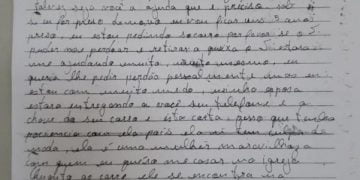 talvez seja você a ajuda que eu preciso, sol
se eu for preso de novo vou ficar uns 3 anos
preso, eu estou pedindo socorro por favor se o S
puder nos perdoar e retirar a queixa o S estara
me ajudando muito, muito mesmo, eu
queria lhe pedir perdão pessoalmente mas eu
estou com muito medo, minha esposa
estara entregando a você seu telefone e a
chave do seu carro e esta carta, peço que tenha
paciencia com ela pois ela não tem culpa de
nada, ela é uma mulher maravilhosa
com quem eu quero me casar na igreja
quanto ao carro ele se encontra na